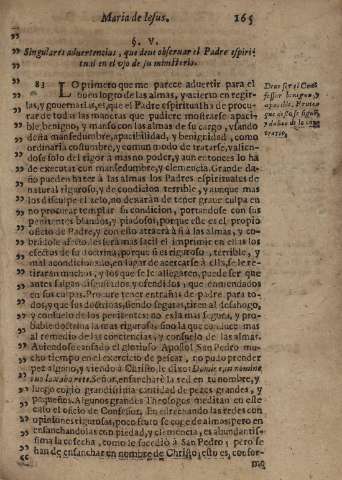 Maria de Iesus. 165
§. V.
Singulares aduertencias, que deue obseruar el Padre espiri-
tual en el vso de su ministerio.
83 LO primero que me parece aduertir para el
buen logro de las almas, y acierto en regir-
las, y gouernarlas, es, que el Padre espiritual ha de procu-
rar de todas las maneras que pudiere mostrarse apaci-
ble, benigno, y manso con las almas de su cargo, vsando
desta mansedumbre, apacibilidad, y benignidad, como
ordinaria costumbre, y comun modo de tratarse, valien-
dose solo del rigor à mas no poder, y aun entonces lo ha
de executar con mansedumbre, y clemencia. Grande da-
ño pueden hazer à las almas los Padres espirituales de
natural riguroso, y de condicion terrible, y aunque mas
los disculpe el zelo, no dexarán de tener graue culpa en
no procurar templar su condicion, portandose con sus
penitentes blandos, y piadosos, porque este es el propio
oficio de Padre, y con esto atraerà à sì à las almas, y co-
brandole afecto, les serà mas facil el imprimir en ellas los
efectos de su doctrina, porque si es riguroso, terrible, y
mal acondicionado, en lugar de acercarse à èl, se le re-
tiraràn muchos, y los que se le allegaren, puede ser que
antes salgan disgustados, y ofendidos, que enmendados
en sus culpas. Procure tener entrañas de padre para to-
dos, y que sus doctrinas, siendo seguras, tiren al desahogo,
y consuelo de los penitentes: no es la mas segura, y pro-
bable doctrina la mas rigurosa, sino la que conduce mas
al remedio de las conciencias, y consuelo de las almas.
Auiendose cansado el glorioso Apostol San Pedro mu-
cho tiempo en el exercicio de pescar, no pudo prender
pez alguno, y viendo à Christo, le dixo: Domine, in nomine
tuo laxabo rete. Señor, ensancharè la red en tu nombre, y
luego cogiò grandissima cantidad de pezes grandes, y
pequeños. Algunos grandes Theologos meditan en este
caso el oficio de Confessor. En estrechando las redes con
opiniones rigurosas, poco fruto se coge de almas; pero en
ensanchandolas con piedad, y clemencia, es abundantis-
sima la cosecha, como le sucediò à San Pedro; pero se
han de ensanchar en nombre de Christo; esto es, confor-
me
Deue ser el Con-
fessor benigno, y
apacible.